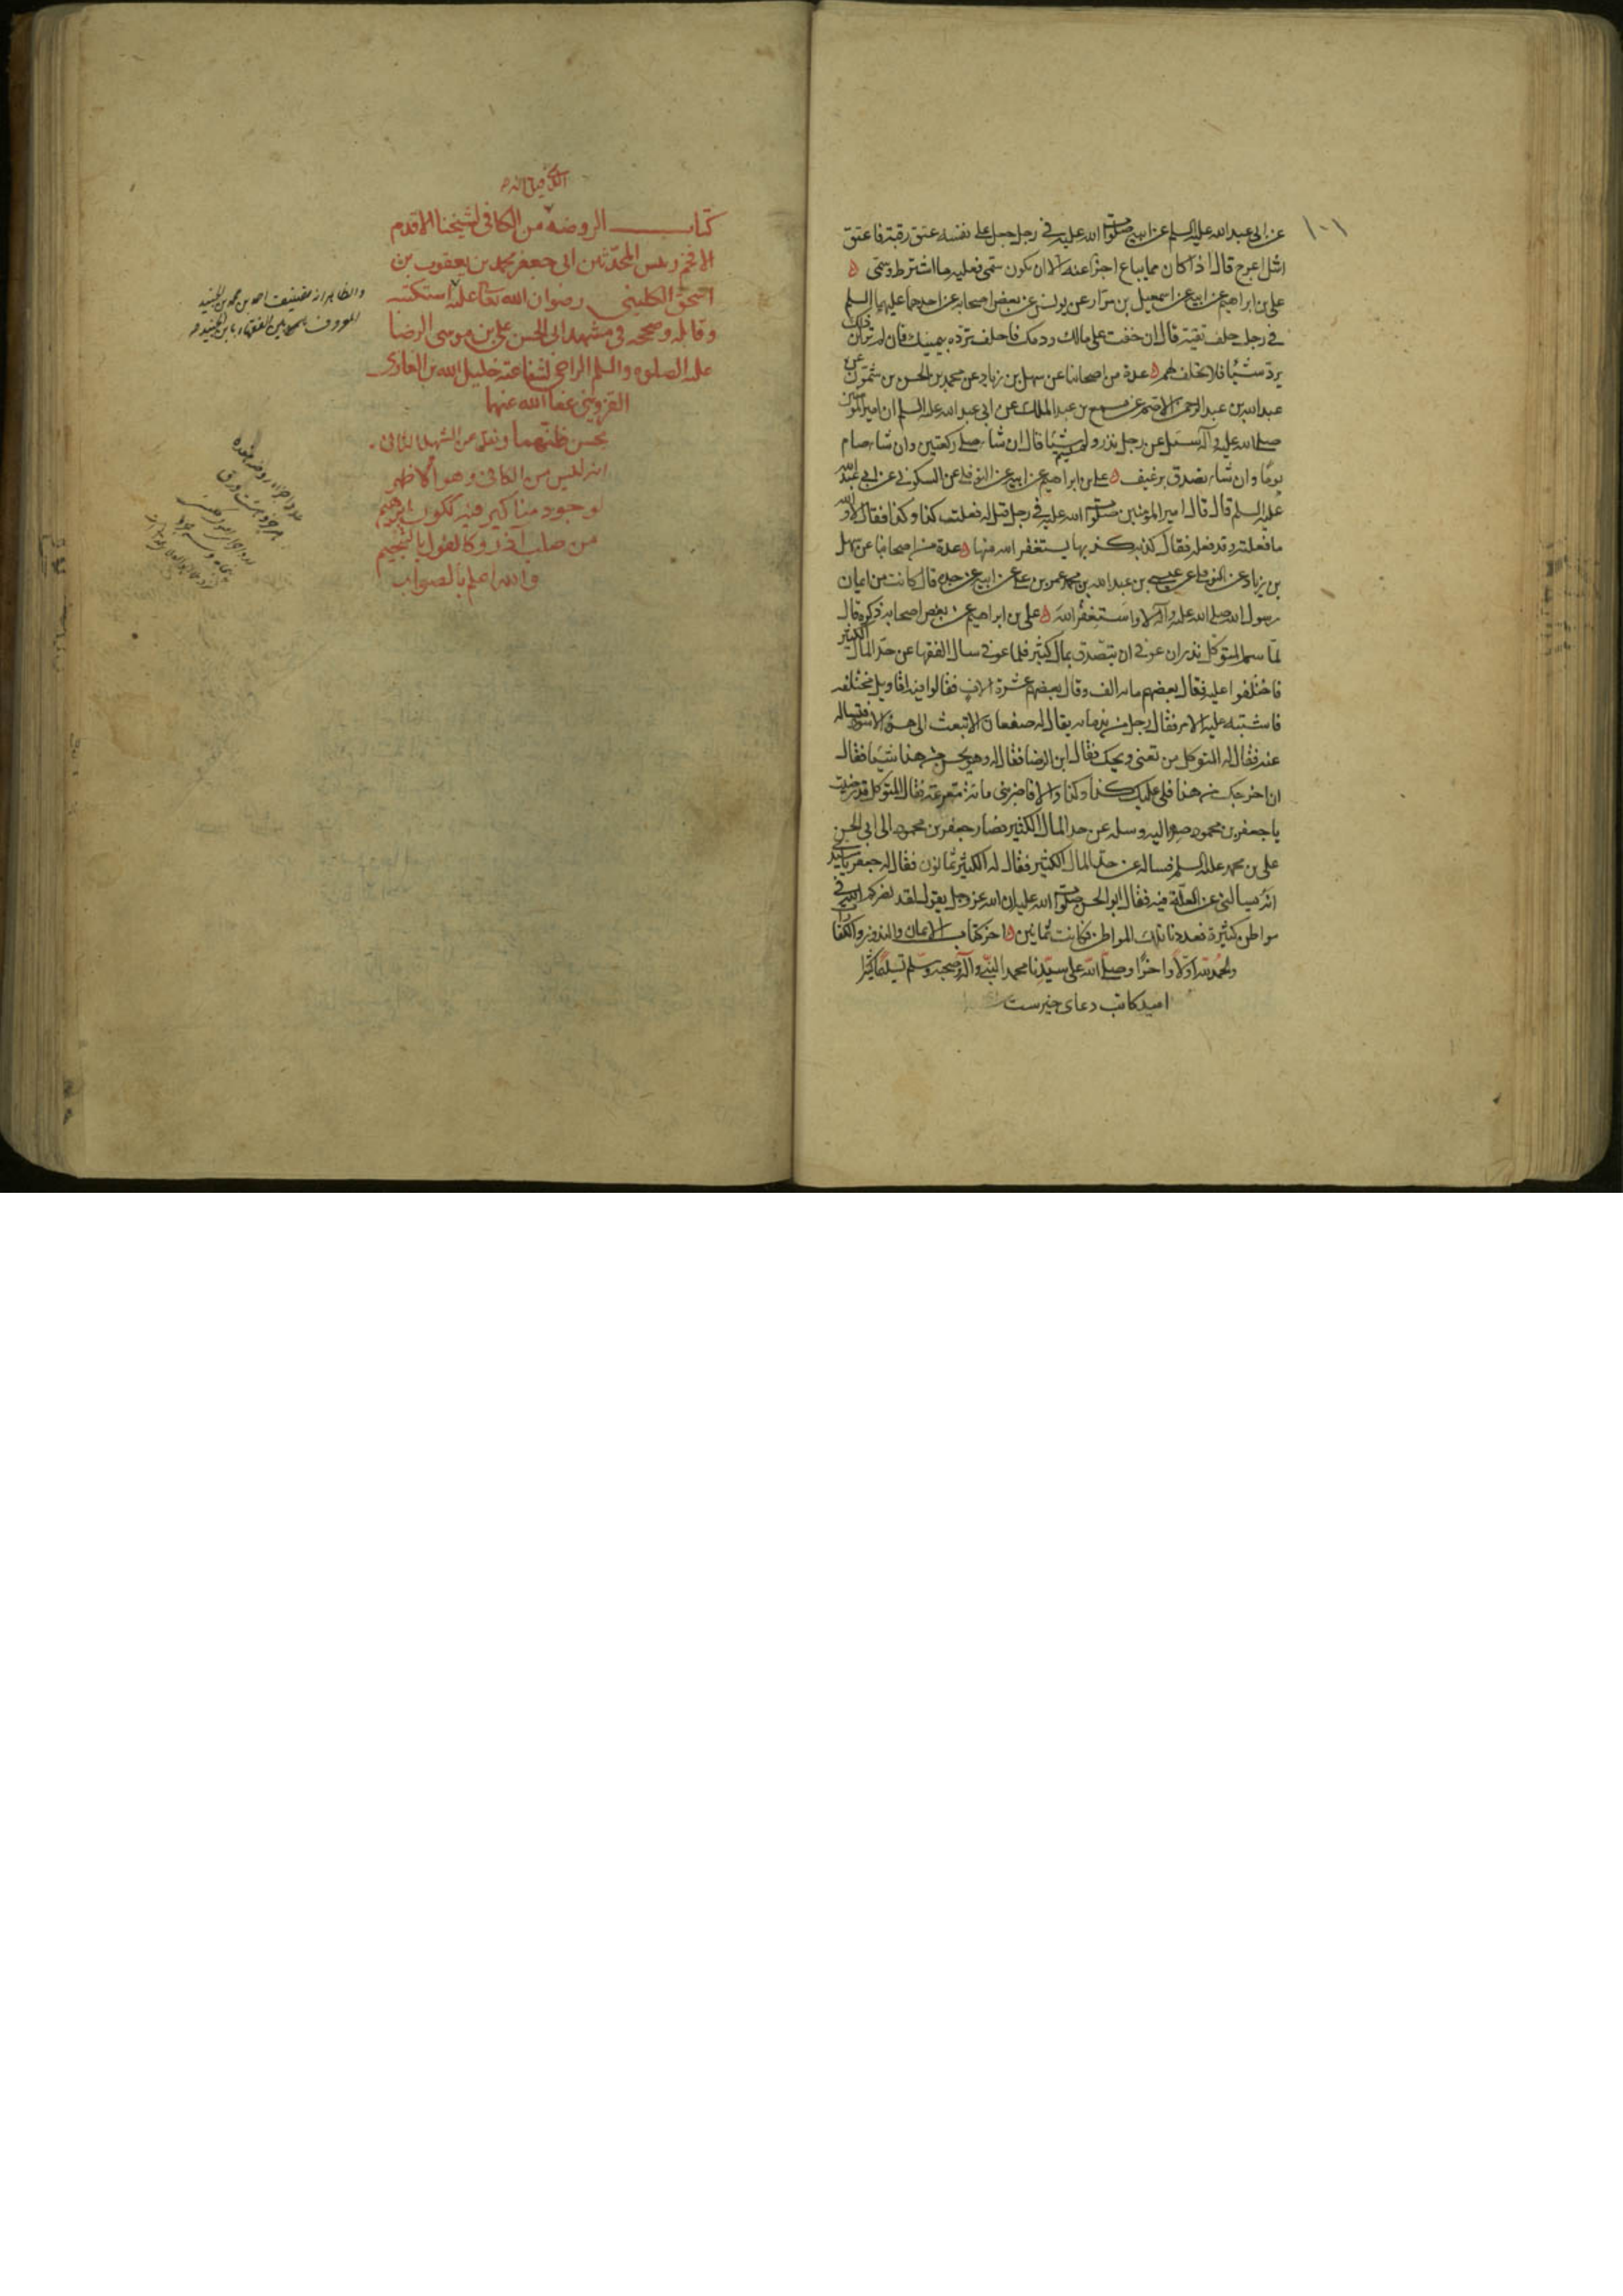 عن ابی عبدالله علیه السلم عن ابیه صلوات الله علیه فی رجل جعل علی نفسه عتق رقبة فاعتق
اشل اعرج قال اذا کان مما یباع اجزا عنه الا ان یکون سمی فعلیه ما اشترط وسمی ه
علی بن ابراهیم عن ابیه عن اسمعیل بن مرار عن یونس عن بعض اصحابه عن احدهما علیهما السلم
فی رجل حلف تقیة قال ان خفت علی مالک ودمک فاحلف ترده بیمینک فان لم تر ان ذلک
یرد شیئا فلا تحلف لهم ه عدة من اصحابنا عن سهل بن زیاد عن محمد بن الحسن بن شمون عن
عبدالله بن عبدالرحمن الاصم عن مسمع بن عبدالملک عن ابی عبدالله علیه السلم ان امیر المومنین
صلی الله علیه وآله سئل عن رجل نذر ولم یسم شیئا قال ان شاء صلی رکعتین وان شاء صام
یوما وان شاء تصدق برغیف ه علی بن ابراهیم عن ابیه عن النوفلی عن السکونی عن ابی عبدالله
علیه السلم قال قال امیر المومنین صلوات الله علیه فی رجل قیل له فعلت کذا وکذا فقال لا والله
ما فعلته وقد فعله فقال کذبة کذبها یستغفر الله منها ه عدة من اصحابنا عن سهل
بن زیاد عن النوفلی عن عیسی بن عبدالله بن محمد عمر بن علی عن ابیه عن جده قال کانت من ایمان
رسول الله صلی الله علیه وآله لا واستغفر الله ه علی بن ابراهیم عن بعض اصحابه ذکره قال
لما سم المتوکل نذر ان عوفی ان یتصدق بمال کثیر فلما عوفی سال الفقها عن حد المال الکثیر
فاختلفوا علیه فقال بعضهم مائة الف وقال بعضهم عشرة الاف فقالوا فیه اقاویل مختلفة
فاشتبه علیه الامر فقال رجل من ندمائه یقال له صفعان الا تبعث الی هذا الاسود فتساله
عنه فقال له المتوکل من تعنی ویحک فقال ابن الرضا فقال له وهو یحسن من هذا شیئا فقال
ان اخرجک من هذا فلی علیک کذا وکذا والا فاضربنی مائة مقرعة فقال المتوکل قد رضیت
یا جعفر بن محمود صر الیه وسله عن حد المال الکثیر فصار جعفر بن محمود الی ابی الحسن
علی بن محمد علیه السلم فساله عن حد المال الکثیر فقال له الکثیر ثمانون فقال له جعفر یا سیدی
انه یسالنی عن العلة فیه فقال ابو الحسن صلوات الله علیه ان الله عز وجل یقول لقد نصرکم الله فی
مواطن کثیرة فعددنا تلک المواطن فکانت ثمانین ه اخر کتاب الایمان والنذور والکفارات
والحمد لله اولا واخرا وصلی الله علی سیدنا محمد النبی وآله وصحبه وسلم تسلیما کثیرا
امید کاتب دعای خیرست
کتاب الروضة من الکافی لشیخنا الاقدم
الافخم رئیس المحدثین ابی جعفر محمد بن یعقوب بن
اسحق الکلینی رضوان الله تعالی علیه استکتبه
وقابله وصححه فی مشهد ابی الحسن علی بن موسی الرضا
علیه الصلوة والسلم الراجی لشفاعته خلیل الله بن الغازی
القزوینی عفا الله عنهما
بحسن ظنهما ونقل من الشهید الثانی
انه لیس من الکافی وهو الاظهر
لوجود مناکیر فیه ککون ابرهیم
من صلب آذر وکالقول بالتنجیم
والله اعلم بالصواب
والظاهر انه تصنیف احمد بن محمد بن الجنید
المعروف بین الفقهاء بابن الجنید